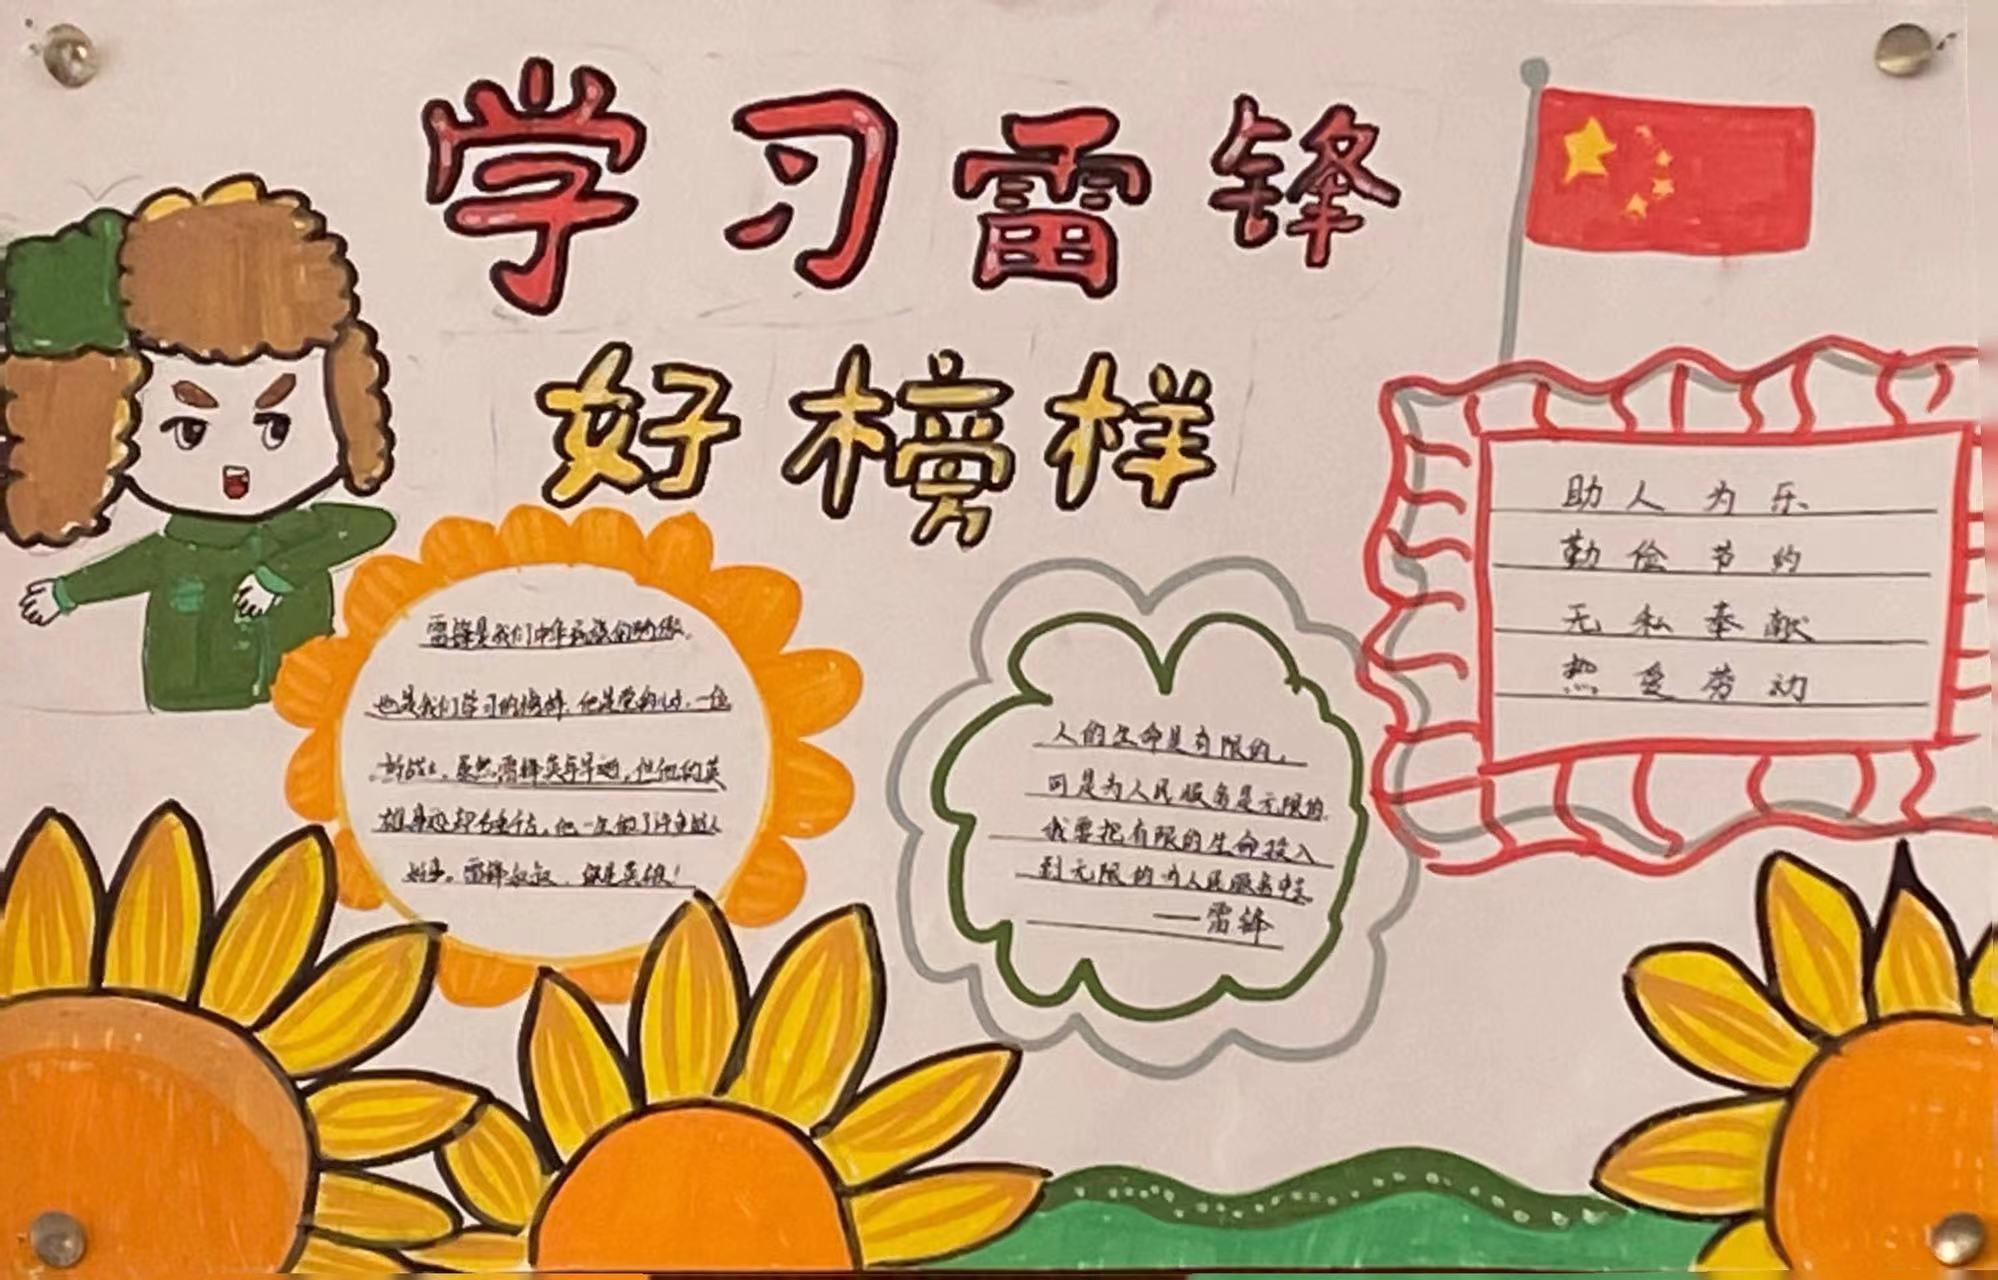 学习雷锋
好榜样
雷锋是我们中华民族的骄傲。
也是我们学习的榜样。他是党的 一位
好战士。虽然雷锋英年早逝,但他的英
雄事迹却 一生做了许多好人
好事。雷锋叔叔,你是英雄!
人的生命是有限的,
可是为人民服务是无限的,
我要把有限的生命投入
到无限的为人民服务中去。
——雷锋
助人为乐
勤俭节约
无私奉献
热爱劳动